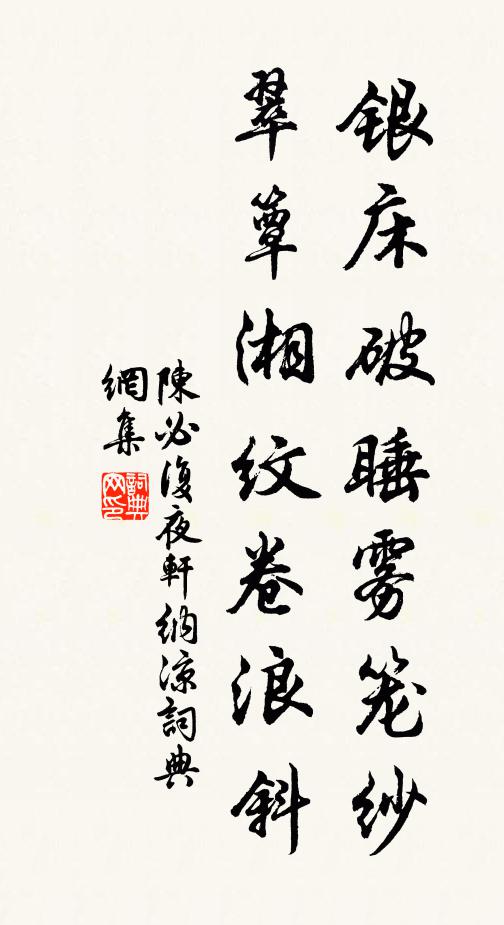 银床破睡雾笼纱
翠簟湘纹卷浪斜
陳必復夜軒納凉詞典
網集
詞典网印